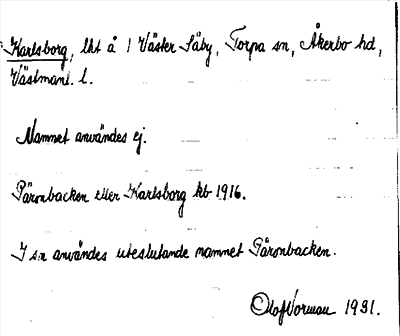 Karlsborg, lht å 1 Väster Säby, Torpa sn, Åkerbo hd,
Västmanl. l.
Namnet användes ej.
Päronbacken eller Karlsborg kb 1916.
I sn användes uteslutande namnet Päronbacken.
Olof Vorman 1931.